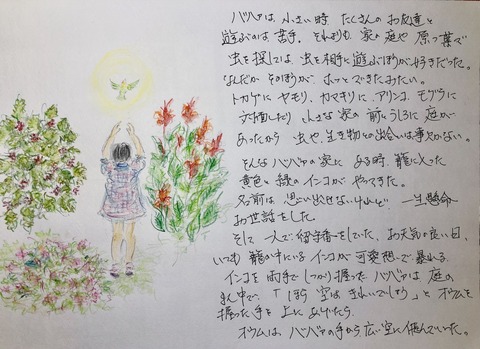 ババァは、小さい時 たくさんのお友達と
遊ぶのは苦手。それよりも 家の庭や 原っ葉で
虫を探しては 虫を相手に遊ぶほうが好きだった。
なんだか そのほうが、ホッとできたみたい。
トカゲに ヤモリ、カマキリに アリンコ、モグラに
小さな家の 前にうしろに 庭が
あったから 虫や、生き物との出会いは事欠かない。
そんなババァの家に ある時、籠に入った
黄色と緑のインコが やってきた。
名前は 思い出せないけれど、一生懸命
お世話をした。
そして 一人で、留守番をしていた お天気の良い日、
いつも 籠の中にいる インコが 可哀想で 暴れる
インコを 両手で しっかり握った ババァは 庭の
まん中で、「ほら 空は きれいでしょう」と オウムを
握った手を 上に あげたら
オウムは、ババァの手から 広い空に 飛んでいった。